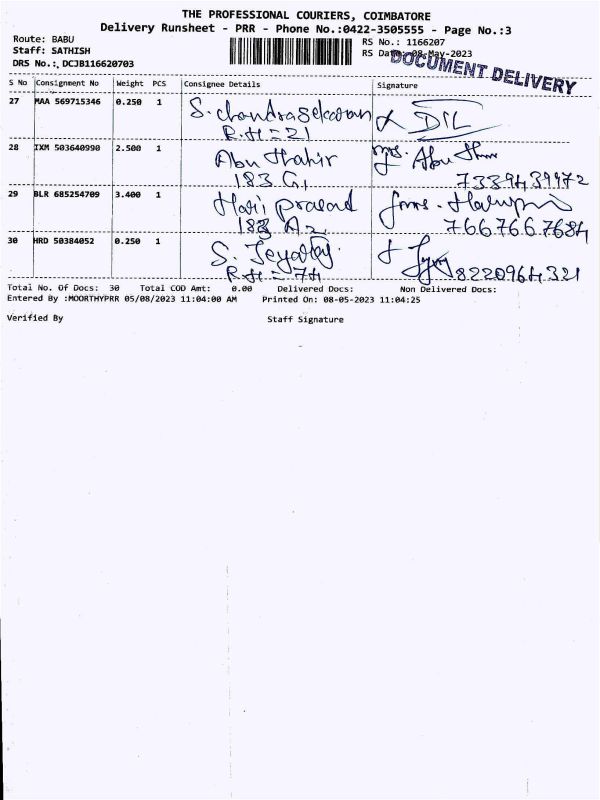 THE PROFESSIONAL COURIERS, COIMBATORE
Delivery Runsheet - PRR - Phone No.:0422-3505555 - Page No.:3
Route: BABU
RS No.: 1166207
Staff: SATHISH
RS Date: 08-May-2023
DOCUMENT DELIVERY
DRS No.: DCJB116620703
S No Consignment No Weight PCS Consignee Details Signature
27 MAA 569715346 0.250 1 S. chandrasekaran DIL
R.H = 21
28 IXM 503640990 2.500 1 Abu thahir mrs. Abu
183.G1 7339439972
29 BLR 685254709 3.400 1 Hari prasad
183 A2 7667667684
30 HRD 50384052 0.250 1 S. Jeyaraj
R.H = 74 8220964321
Total No. Of Docs: 30 Total COD Amt: 0.00 Delivered Docs: Non Delivered Docs:
Entered By :MOORTHYPRR 05/08/2023 11:04:00 AM Printed On: 08-05-2023 11:04:25
Verified By Staff Signature